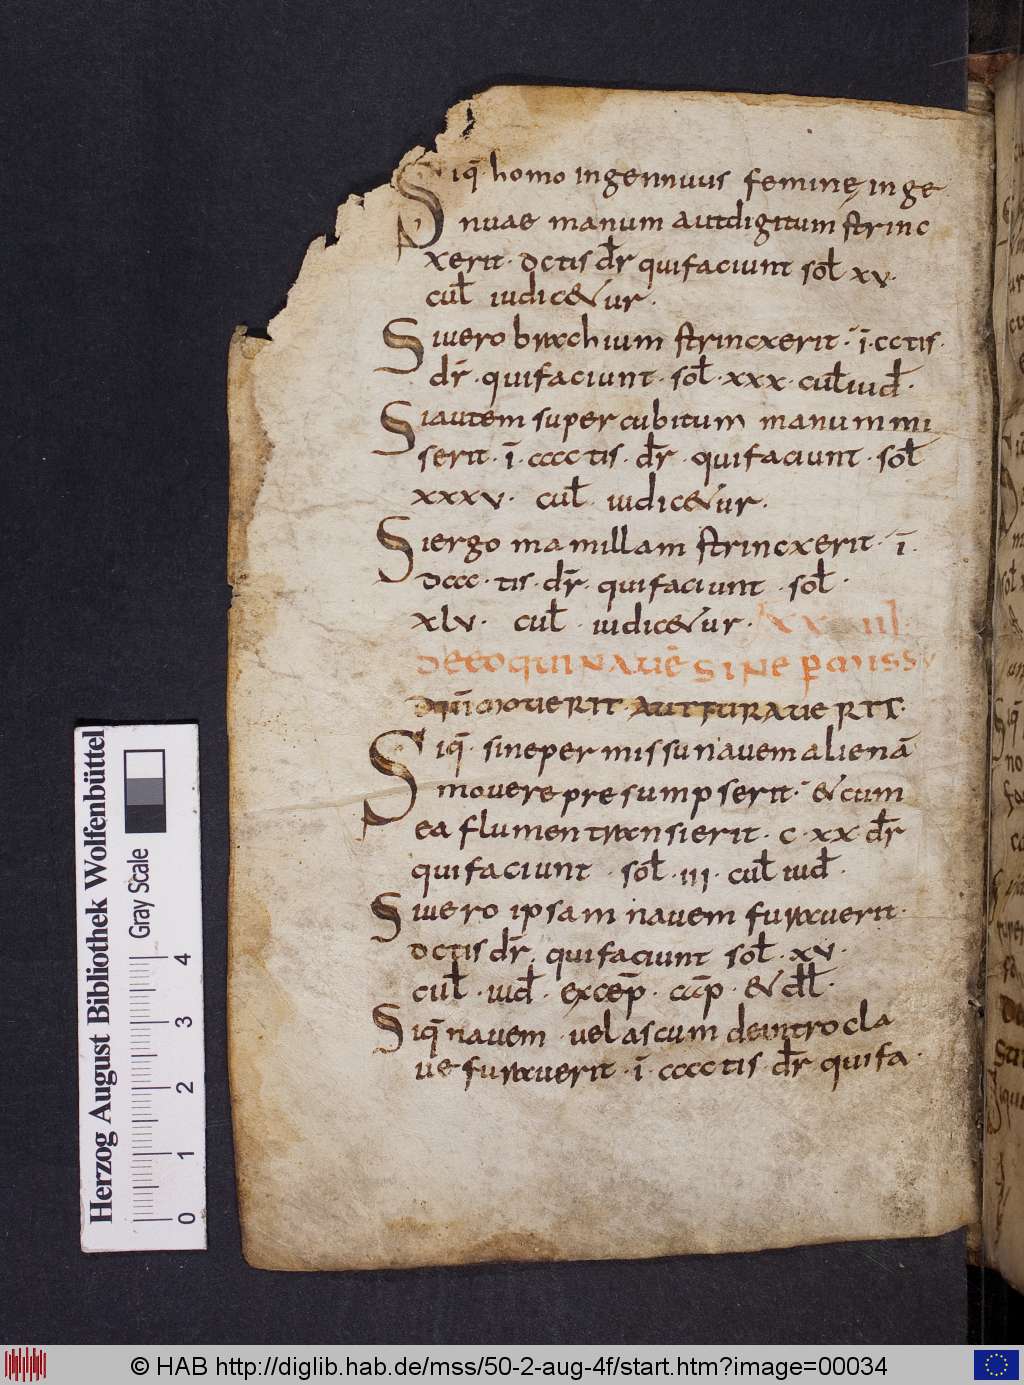 Siq̄ homo ingennuus feminę inge
nuae manum autdigitum strinc
xerit · dctis dr̄ quifaciunt sol̄ xv·
cul̄ iudicetur ·
Siuero brachium strincxerit · ī·cctis·
dr̄ · quifaciunt · sol̄ · xxx · cul̄iud̄ ·
Siautem super cubitum manummi
serit · ī · cccc tis · dr̄ · quifaciunt · sol̄
xxxv · cul̄ iudicetur ·
Siergo mamillam strincxerit · ī ·
dccc · tis · dr̄ · quifaciunt · sol̄ ·
xlv · cul̄ iudicetur ·
mouerit aut furauerit·
Siq̄ · sineper missu nauem alienā
mouere presumpserit · & cum
ea flumen transierit · c · xx dr̄
quifaciunt · sol̄ · iii · cul̄ iud̄ ·
Siuero ipsam nauem furauerit ·
dctis dr̄ · quifaciunt sol̄ · xv ·
cul̄ · iud̄ · excep̄ · cap̄ · & dl̄ ·
Siq̄ nauem · uel ascum deintro cla
ue furauerit · ī · cccc tis dr̄ quifa ·
Herzog August Bibliothek Wolfenbüttel
Gray Scale
0 1 2 3 4
© HAB http://diglib.hab.de/mss/50-2-aug-4f/start.htm?image=00034